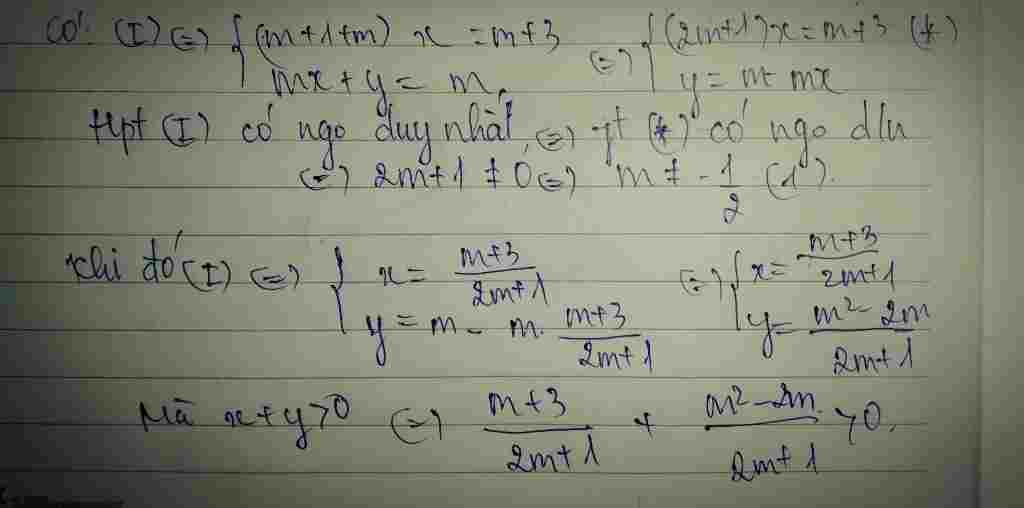 Có: (I) (=) { (m+1+m) x = m+3 (=) { (2m+1)x = m+3 (*)
mx + y = m, y = m - mx
Hpt (I) có ngo duy nhất, (=) pt (*) có ngo dln
(=) 2m+1 ≠ 0 (=) m ≠ -1/2 (1).
Khi đó (I) (=) { x = (m+3)/(2m+1) (=) { x = (m+3)/(2m+1)
y = m - m. (m+3)/(2m+1) y = (m² - 2m)/(2m+1)
Mà x+y>0 (=) (m+3)/(2m+1) + (m² - 2m)/(2m+1) >0.